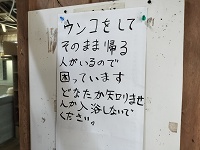 ウンコをして
そのまま帰る
人がいるので
困っています
どなたか知りませ
んが入浴しないで
ください。